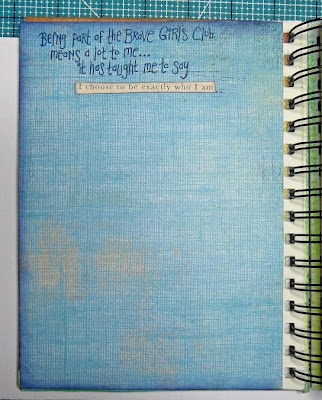 Being part of the Brave Girls Club
means a lot to me...
it has taught me to say
I choose to be exactly who I am